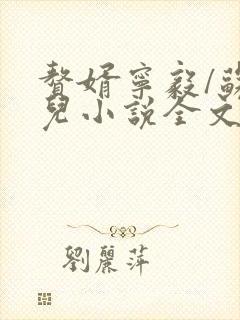 贅婿寧毅/蘇
兒小說全文
劉麗萍